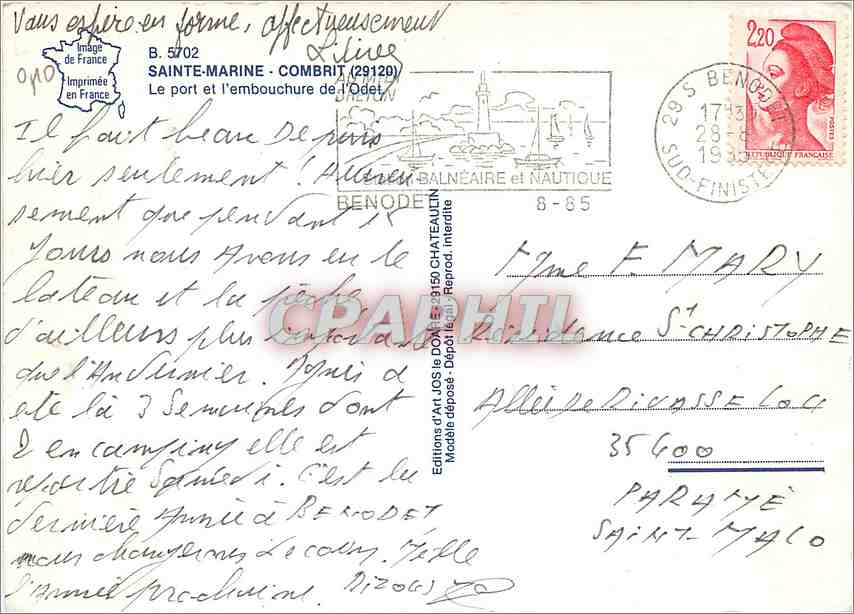 Vous espère en forme, affectueusement
Image
de France
Imprimée
en France
B. 5702
SAINTE-MARINE - COMBRIT (29120)
Le port et l'embouchure de l'Odet
BRETON
BALNÉAIRE et NAUTIQUE
BENODET 8-85
29 S. BENODET
17H30
28-8
19
SUD-FINISTE
2,20
POSTES
REPUBLIQUE FRANÇAISE
Il fait beau Depuis
hier seulement ! Heureu
sement que pendant 15
Jours nous Avons eu le
bateau et la pêche
d'ailleurs plus
que l'An dernier. a
été là 3 Semaines dont
2 en camping elle est
repartie Samedi. C'est la
dernière Année à BENODET,
nous changerons de coin. Mille
l'Année prochaine. Bizous
Editions d'Art JOS le DOARE - 29150 CHATEAULIN
Modèle déposé - Dépôt légal - Reprod. interdite
CPAPHIL
Mme F. MARY
Résidence St CHRISTOPHE
Allée De
35400
PARAMÉ
SAINT-MALO